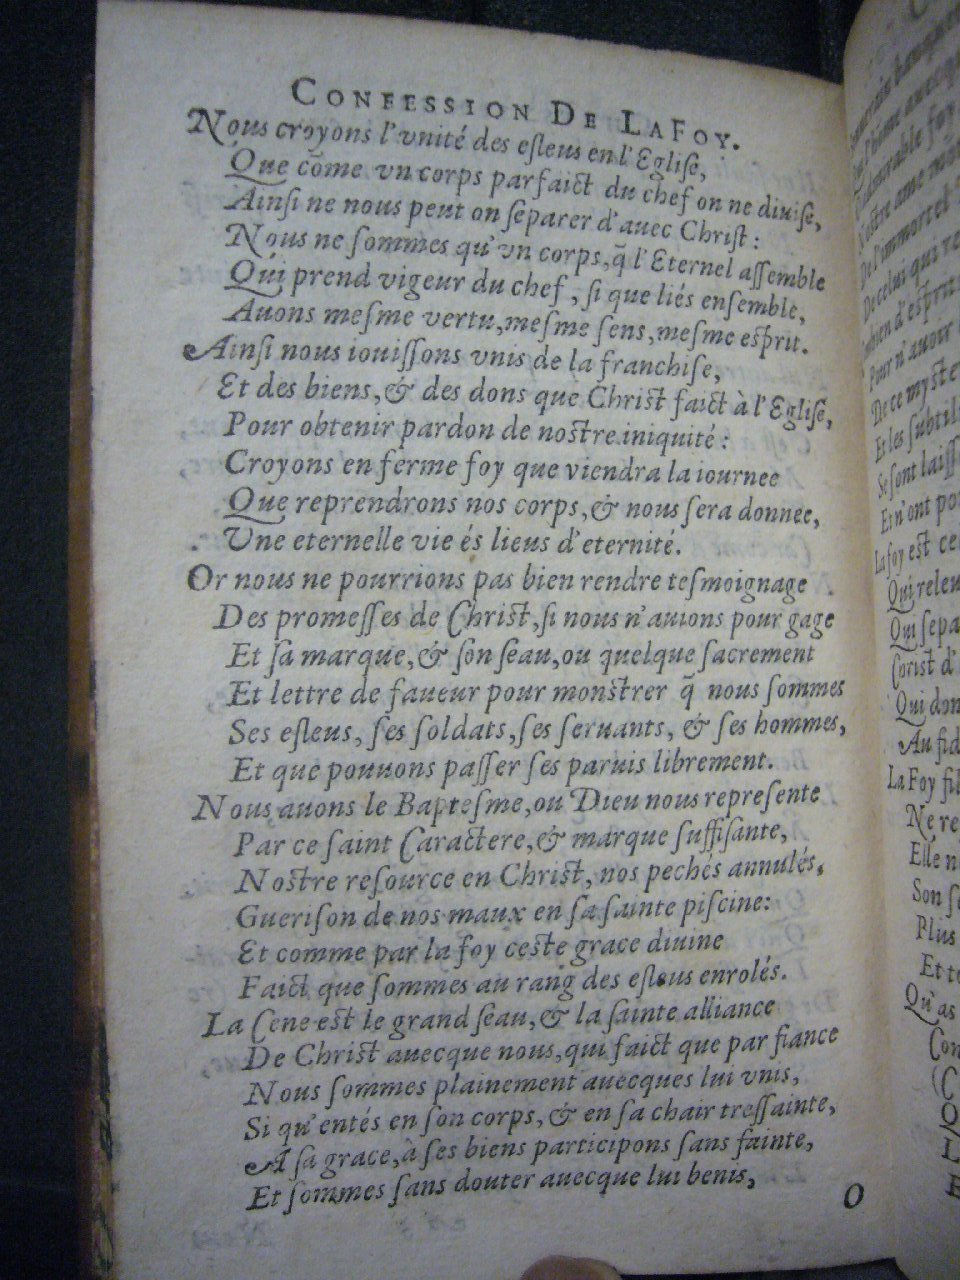 CONFESSION DE LA FOY.
Nous croyons l'vnité des esleus en l'Eglise,
Que cõme vn corps parfaict du chef on ne diuise,
Ainsi ne nous peut on separer d'auec Christ:
Nous ne sommes qu'vn corps, q̃ l'Eternel assemble
Qui prend vigeur du chef, si que liés ensemble,
Auons mesme vertu, mesme sens, mesme esprit.
Ainsi nous iouissons vnis de la franchise,
Et des biens, & des dons que Christ faict à l'Eglise,
Pour obtenir pardon de nostre iniquité:
Croyons en ferme foy que viendra la iournee
Que reprendrons nos corps, & nous sera donnee,
Une eternelle vie és lieus d'eternité.
Or nous ne pourrions pas bien rendre tesmoignage
Des promesses de Christ, si nous n'auions pour gage
Et sa marque, & son seau, ou quelque sacrement
Et lettre de faueur pour monstrer q̃ nous sommes
Ses esleus, ses soldats, ses seruants, & ses hommes,
Et que pouuons passer ses paruis librement.
Nous auons le Baptesme, ou Dieu nous represente
Par ce saint Caractere, & marque suffisante,
Nostre resource en Christ, nos pechés annulés,
Guerison de nos maux en sa sainte piscine:
Et comme par la foy ceste grace diuine
Faict que sommes au rang des esleus enrolés.
La Cene est le grand seau, & la sainte alliance
De Christ auecque nous, qui faict que par fiance
Nous sommes plainement auecques lui vnis,
Si qu'entés en son corps, & en sa chair tressainte,
A sa grace, à ses biens participons sans fainte,
Et sommes sans douter auecque lui benis,
O
De l'immortel
De celui qui
Pour n'auoir
De ce myste
Et les subtil
Se sont laiss
Et n'ont po
La foy est ce
Qui releu
Qui sepa
Christ d'
Qui don
Au fid
La Foy fil
Ne re
Elle n
Son se
Plus
Et to
Qu'as
Con
(C